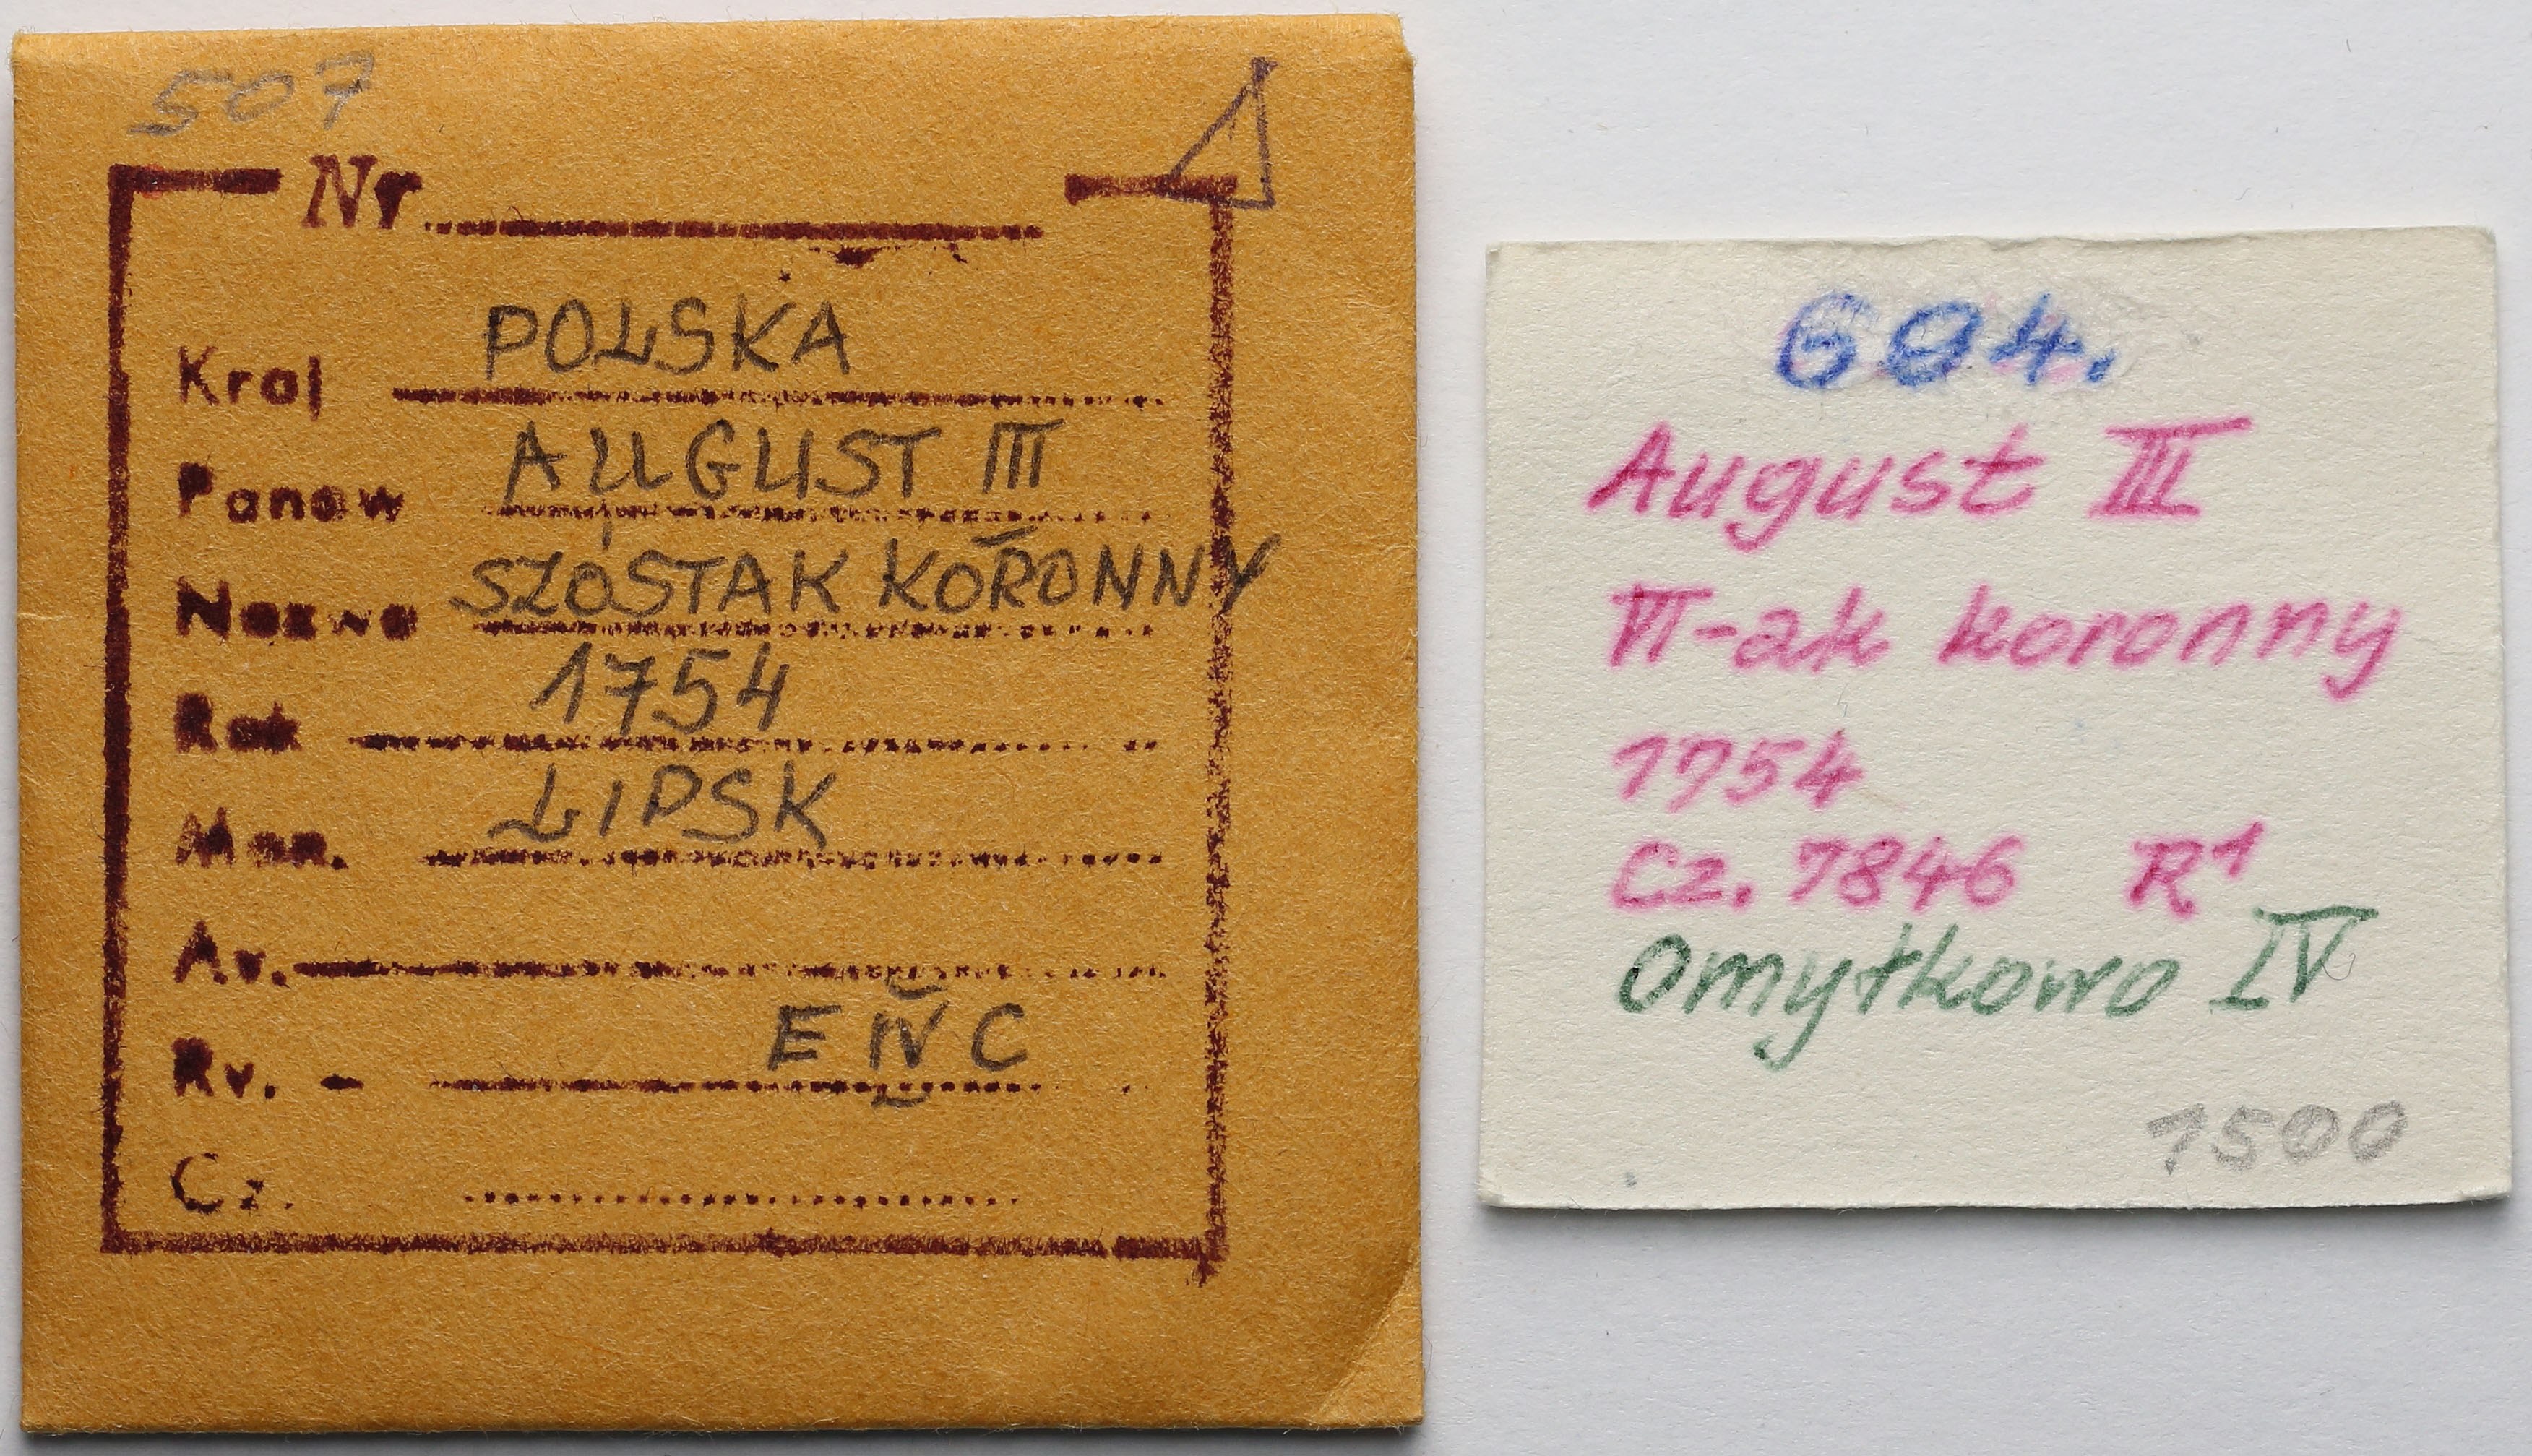 507
Nr
Kraj POLSKA
Panow AUGUST III
Nazwa SZÓSTAK KORONNY
Rok 1754
Men. LIPSK
Av.
Rv. - E IV C
Cz.
604.
August III
VI-ak koronny
1754
Cz. 7846 R1
Omyłkowo IV
1500